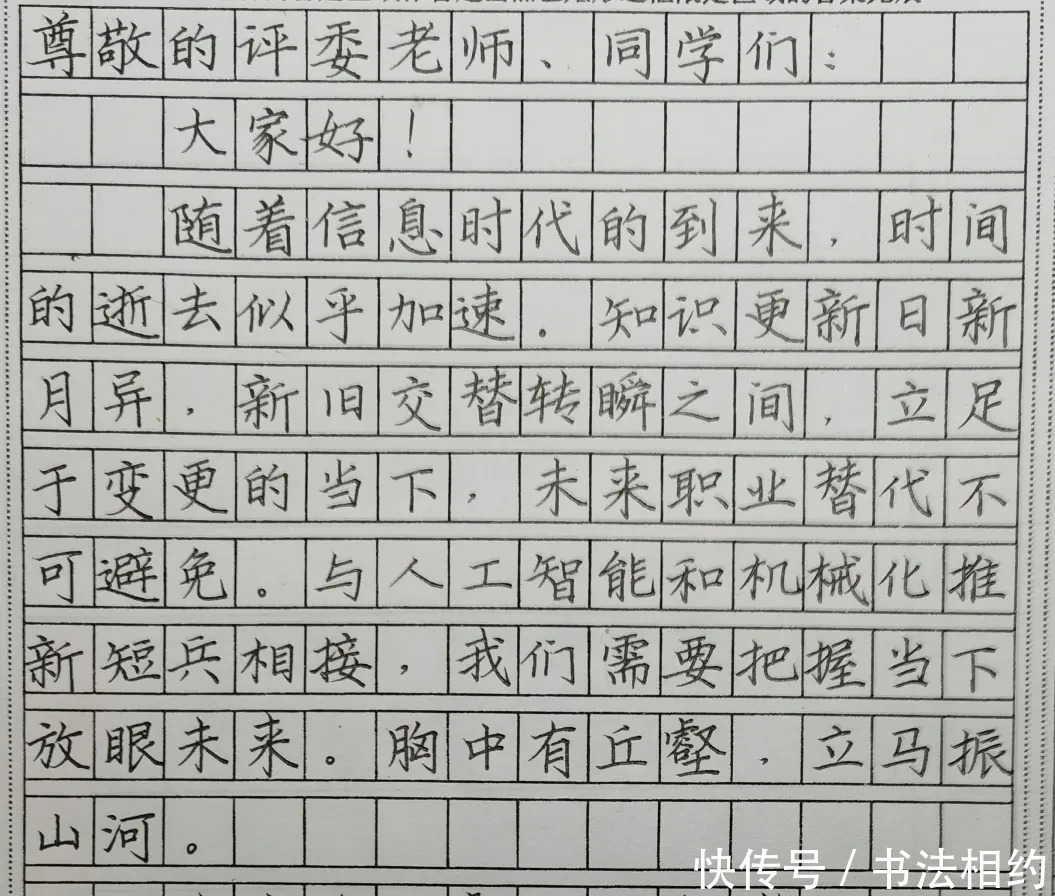 尊敬的评委老师、同学们：
大家好！
随着信息时代的到来，时间
的逝去似乎加速。知识更新日新
月异，新旧交替转瞬之间，立足
于变更的当下，未来职业替代不
可避免。与人工智能和机械化推
新短兵相接，我们需要把握当下
放眼未来。胸中有丘壑，立马振
山河。
快传号/书法相约